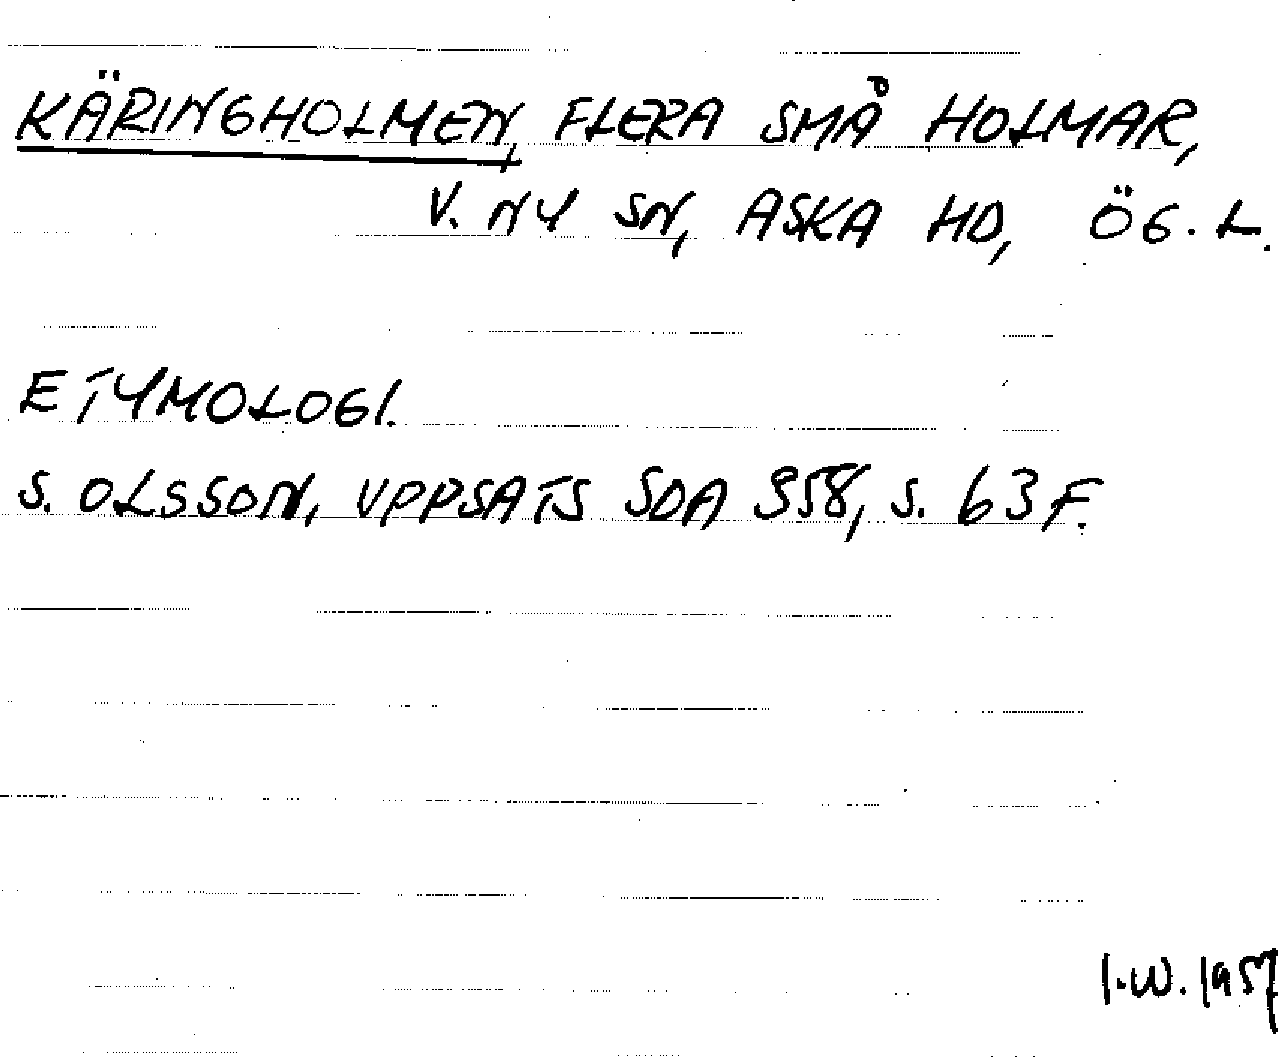 KÄRINGHOLMEN, FLERA SMÅ HOLMAR,
V. NY SN, ASKA HD, ÖG. L.
ETYMOLOGI.
S. OLSSON, UPPSATS SDA 358, S. 63 F.
I.W. 1957